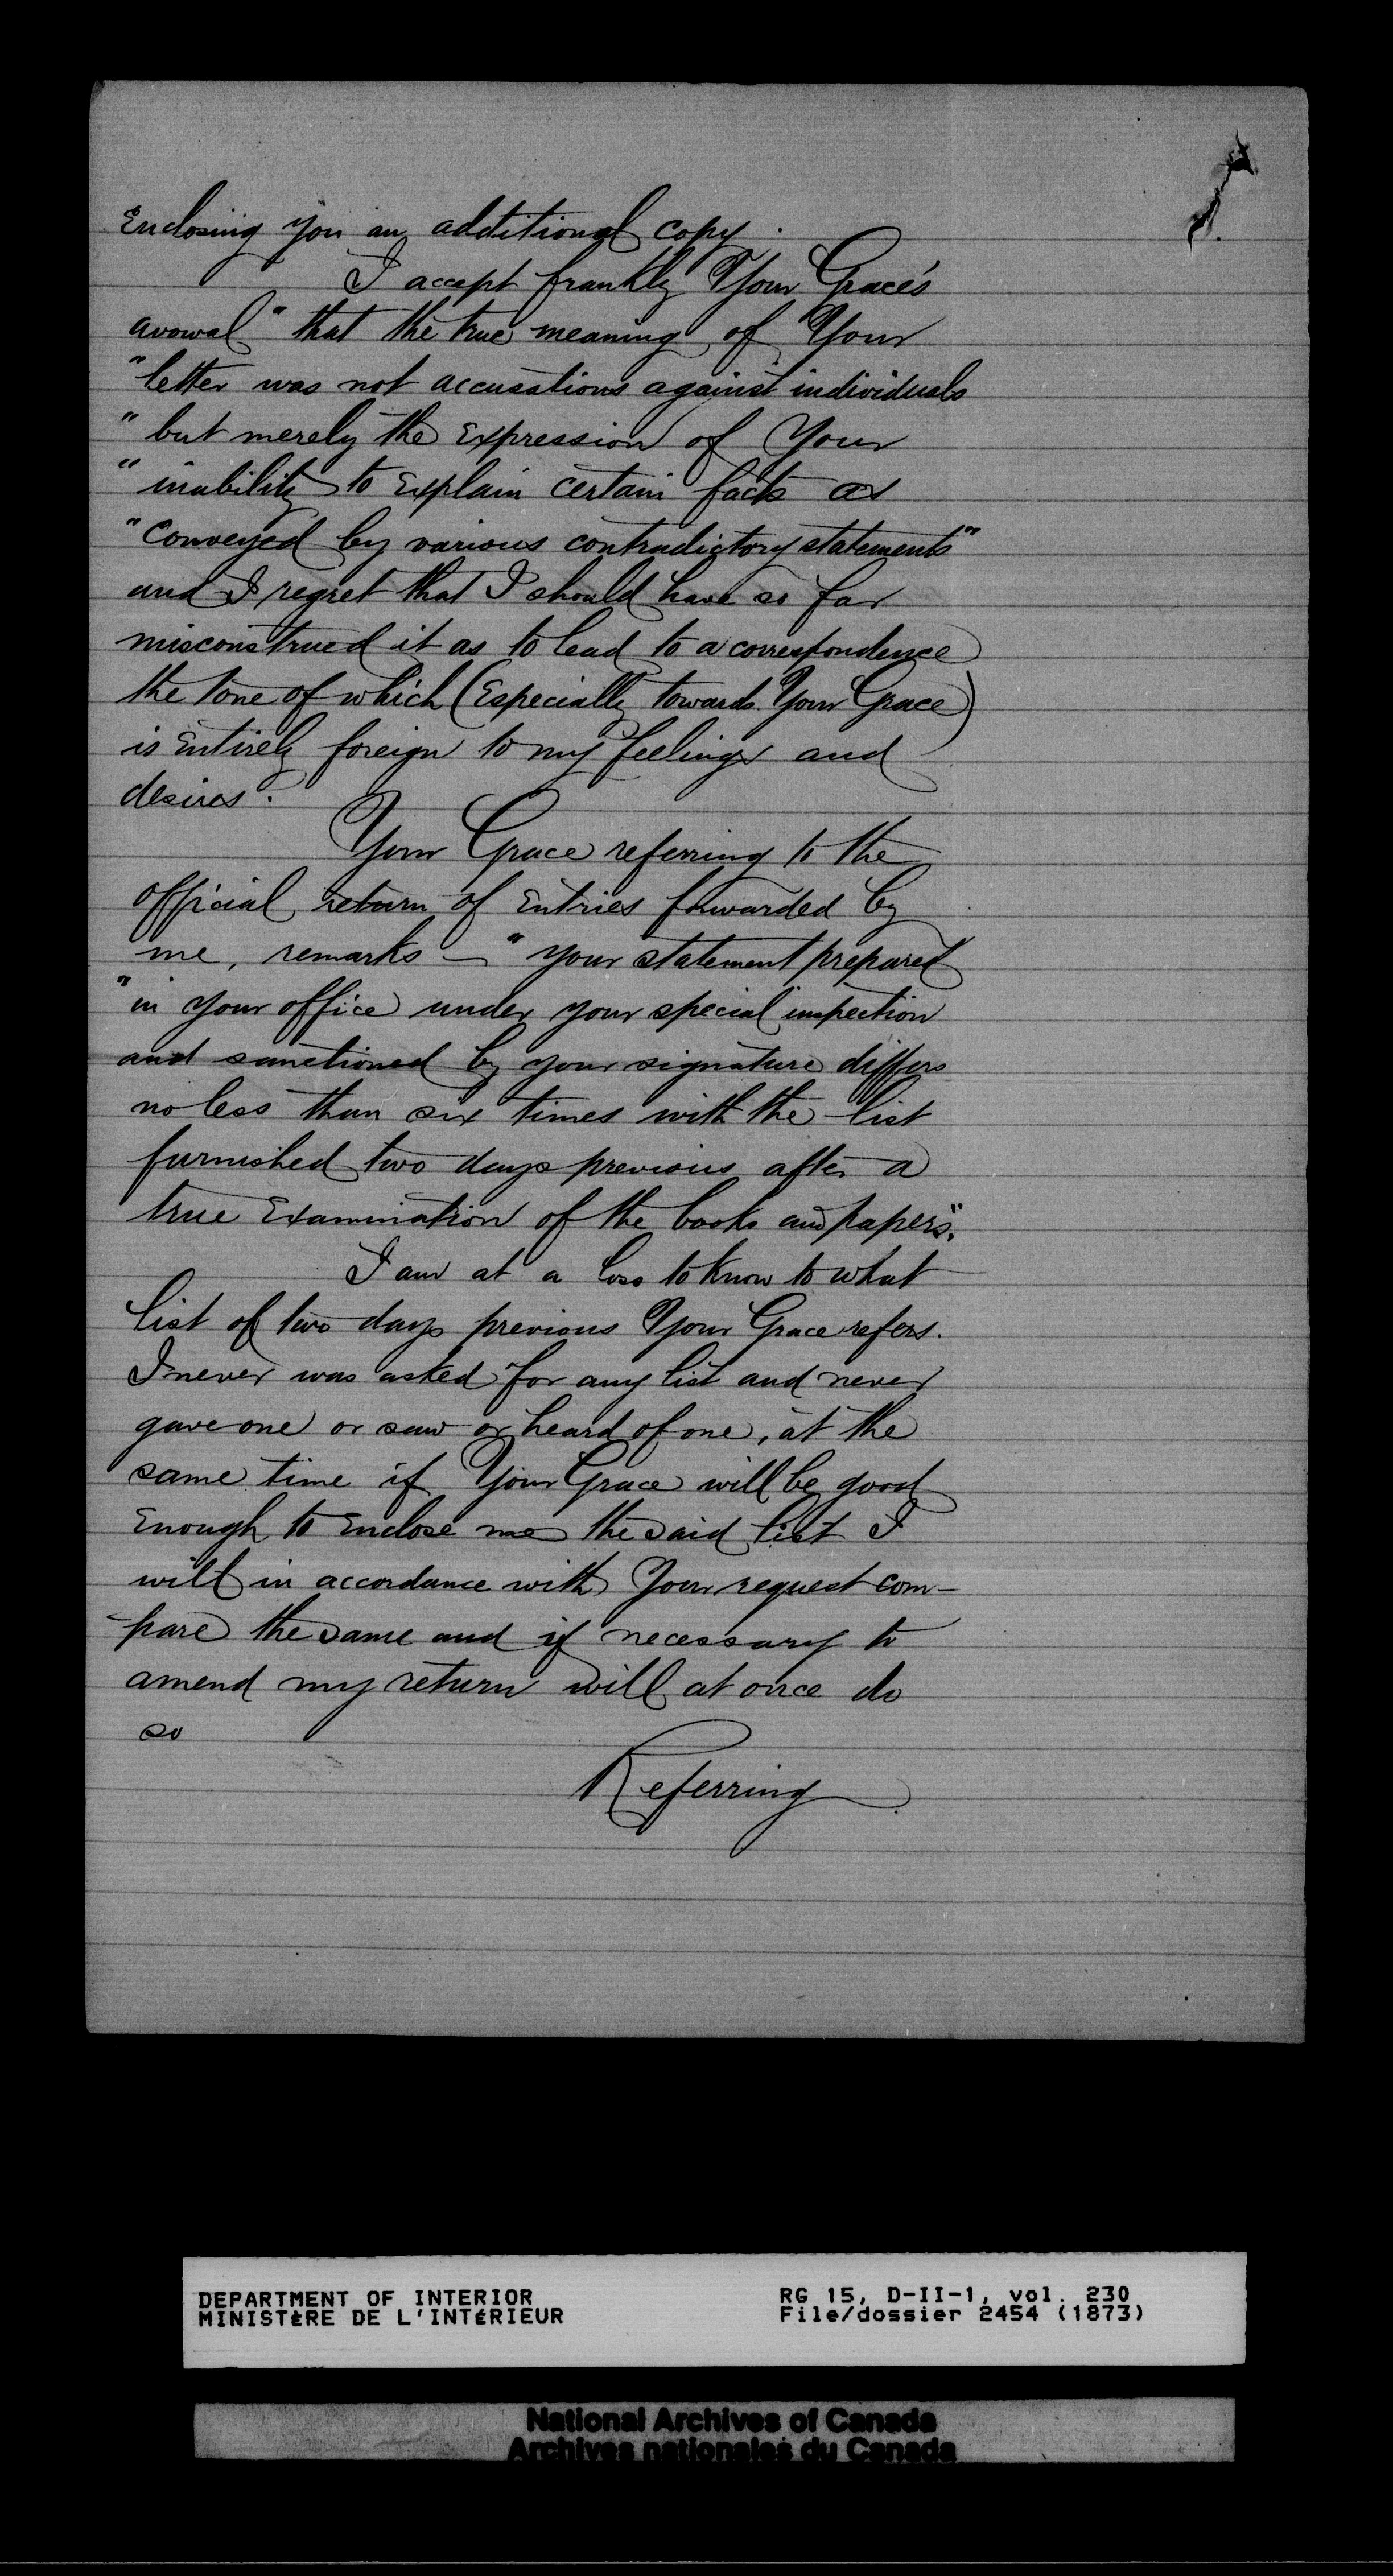 Enclosing you an additional copy.
I accept frankly Your Grace's
avowal "that the true meaning of Your
"letter was not accusations against individuals
"but merely the Expression of Your
"inability to Explain certain facts as
"conveyed by various contradictory statements"
and I regret that I should have so far
misconstrued it as to lead to a correspondence
the tone of which (Especially towards Your Grace)
is Entirely foreign to my feelings and
desires.
Your Grace referring to the
official return of Entries forwarded by
me, remarks — "your statement prepared
"in your office under your special inspection
and sanctioned by your signature differs
no less than six times with the list
furnished two days previous after a
true Examination of the books and papers".
I am at a loss to know to what
list of two days previous Your Grace refers.
I never was asked for any list and never
gave one or saw or heard of one, at the
same time if Your Grace will be good
Enough to Enclose me the said list I
will in accordance with Your request com-
-pare the same and if necessary to
amend my return will at once do
so
Referring
DEPARTMENT OF INTERIOR
MINISTÈRE DE L'INTÉRIEUR
RG 15, D-II-1, vol. 230
File/dossier 2454 (1873)
National Archives of Canada
Archives nationales du Canada